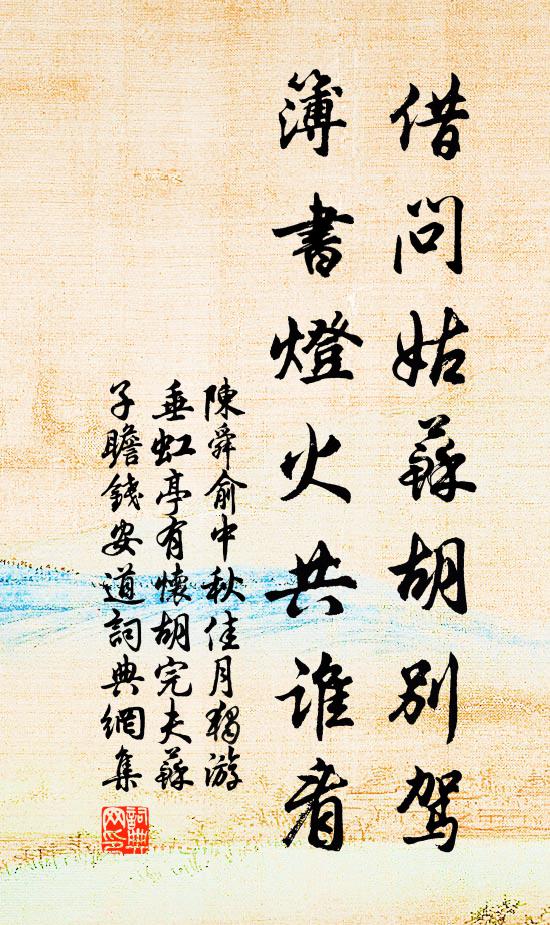 借問姑蘇胡別駕
簿書燈火共誰看
陳舜俞中秋佳月獨游
垂虹亭有懷胡完夫蘇
子瞻錢安道詞典網集
詞典网印